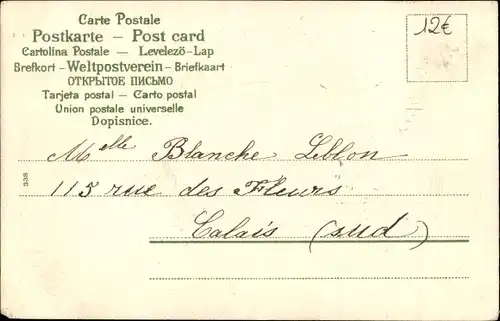 Carte Postale
Postkarte – Post card
Cartolina Postale — Levelező-Lap
Brefkort - Weltpostverein - Briefkaart
ОТКРЫТОЕ ПИСЬМО
Tarjeta postal – Carto postal
Union postale universelle
Dopisnice.
12€
Melle Blanche Leblon
115 rue des Fleurs
Calais (sud)
338